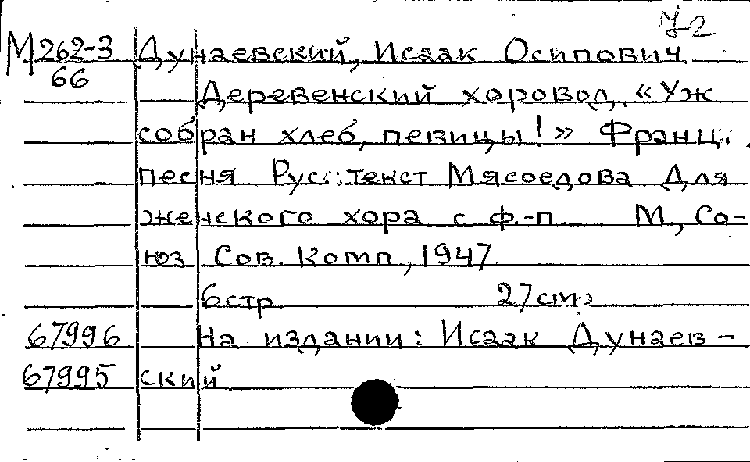 М 262-3 Дунаевский, Исаак Осипович
66 Деревенский хоровод. «Уж
собран хлеб, певицы!» Франц.
песня Рус. текст Мясоедова Для
женского хора с ф.-п М., Со-
юз Сов. Комп., 1947
6 стр 27 см.
67996 На издании: Исаак Дунаев-
67995 ский